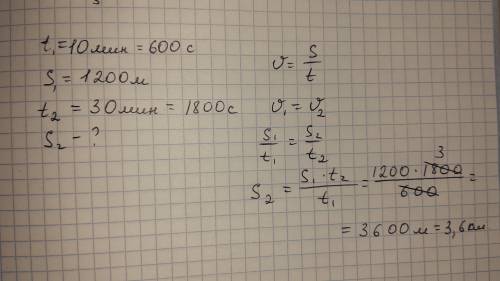 t₁=10мин=600с
S₁=1200м
t₂=30мин=1800с
S₂-?
υ=S/t
υ₁=υ₂
S₁/t₁=S₂/t₂
S₂=S₁·t₂/t₁=1200·1800/600=
3
=3600м=3,6км